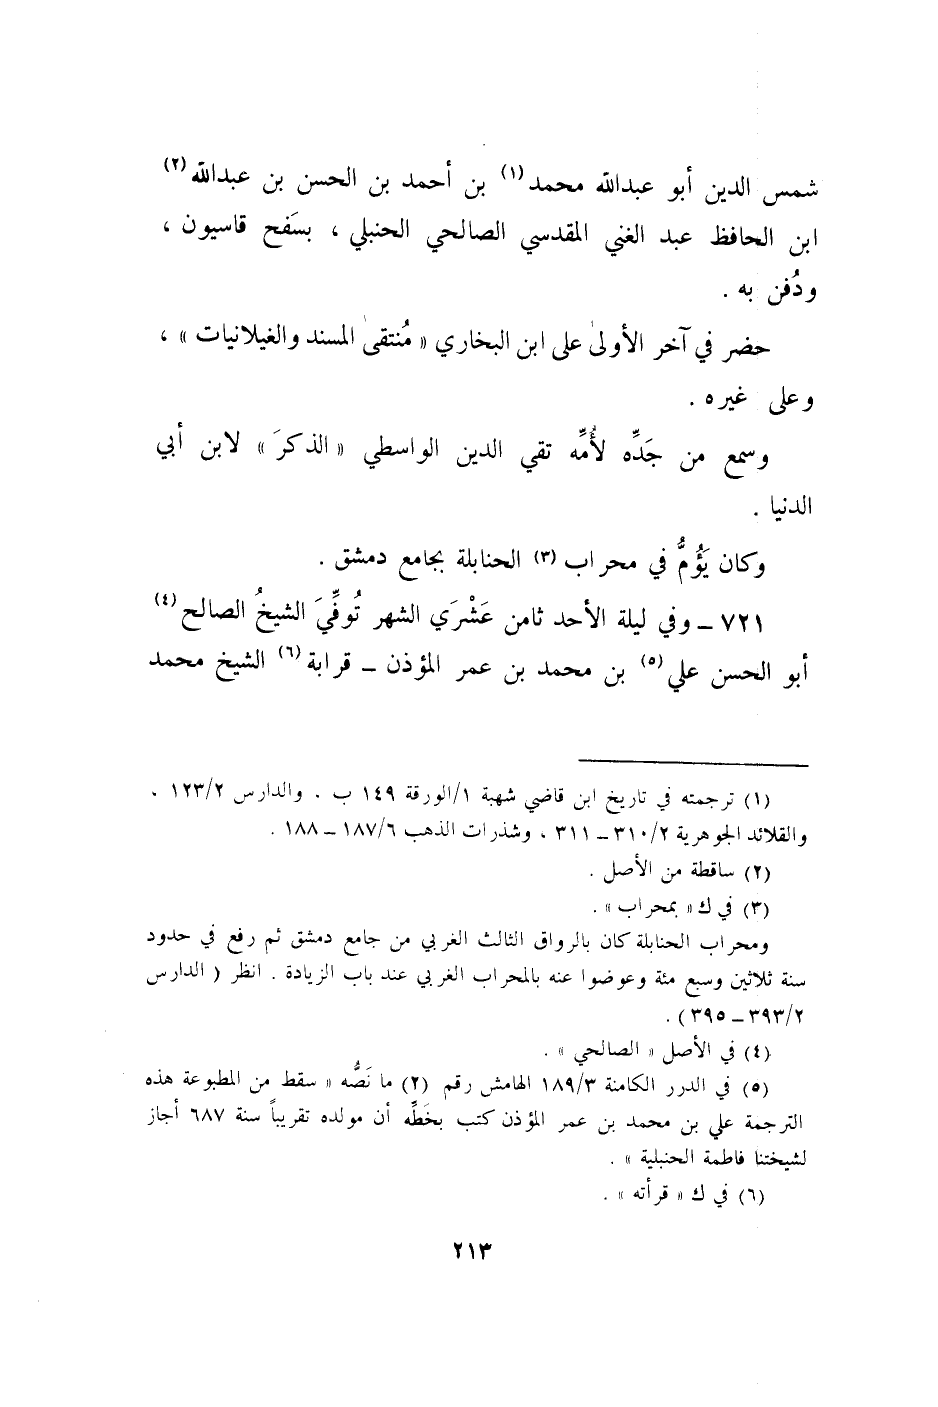 شمس الدين أبو عبدالله محمد(١) بن أحمد بن الحسن بن عبدالله(٢)
ابن الحافظ عبد الغني المقدسي الصالحي الحنبلي ، بسَفح قاسيون ،
ودُفن به .
حضر في آخر الأولىٰ على ابن البخاري « مُنتقىٰ المسند والغيلانيات » ،
وعلى غيره .
وسمع من جَدِّه لأُمِّه تقي الدين الواسطي « الذكرَ » لابن أبي
الدنيا .
وكان يَؤُمُّ في محراب (٣) الحنابلة بجامع دمشق .
٧٢١ ــ وفي ليلة الأحد ثامن عَشْرَي الشهر تُوفِّيَ الشيخُ الصالح(٤)
أبو الحسن علي(٥) بن محمد بن عمر المؤذن ــ قرابة(٦) الشيخ محمد
(١) ترجمته في تاريخ ابن قاضي شهبة ١/الورقة ١٤٩ ب . والدارس ١٢٣/٢ ،
والقلائد الجوهرية ٣١٠/٢ ــ ٣١١ ، وشذرات الذهب ١٨٧/٦ ــ ١٨٨ .
(٢) ساقطة من الأصل .
(٣) في ك « بمحراب » .
ومحراب الحنابلة كان بالرواق الثالث الغربي من جامع دمشق ثم رفع في حدود
سنة ثلاثين وسبع مئة وعوضوا عنه بالمحراب الغربي عند باب الزيادة . انظر ( الدارس
٣٩٣/٢ ــ ٣٩٥) .
(٤) في الأصل « الصالحي » .
(٥) في الدرر الكامنة ١٨٩/٣ الهامش رقم (٢) ما نَصُّه « سقط من المطبوعة هذه
الترجمة علي بن محمد بن عمر المؤذن كتب بخَطِّه أن مولده تقريباً سنة ٦٨٧ أجاز
لشيختنا فاطمة الحنبلية » .
(٦) في ك « قرأته » .
٢١٣